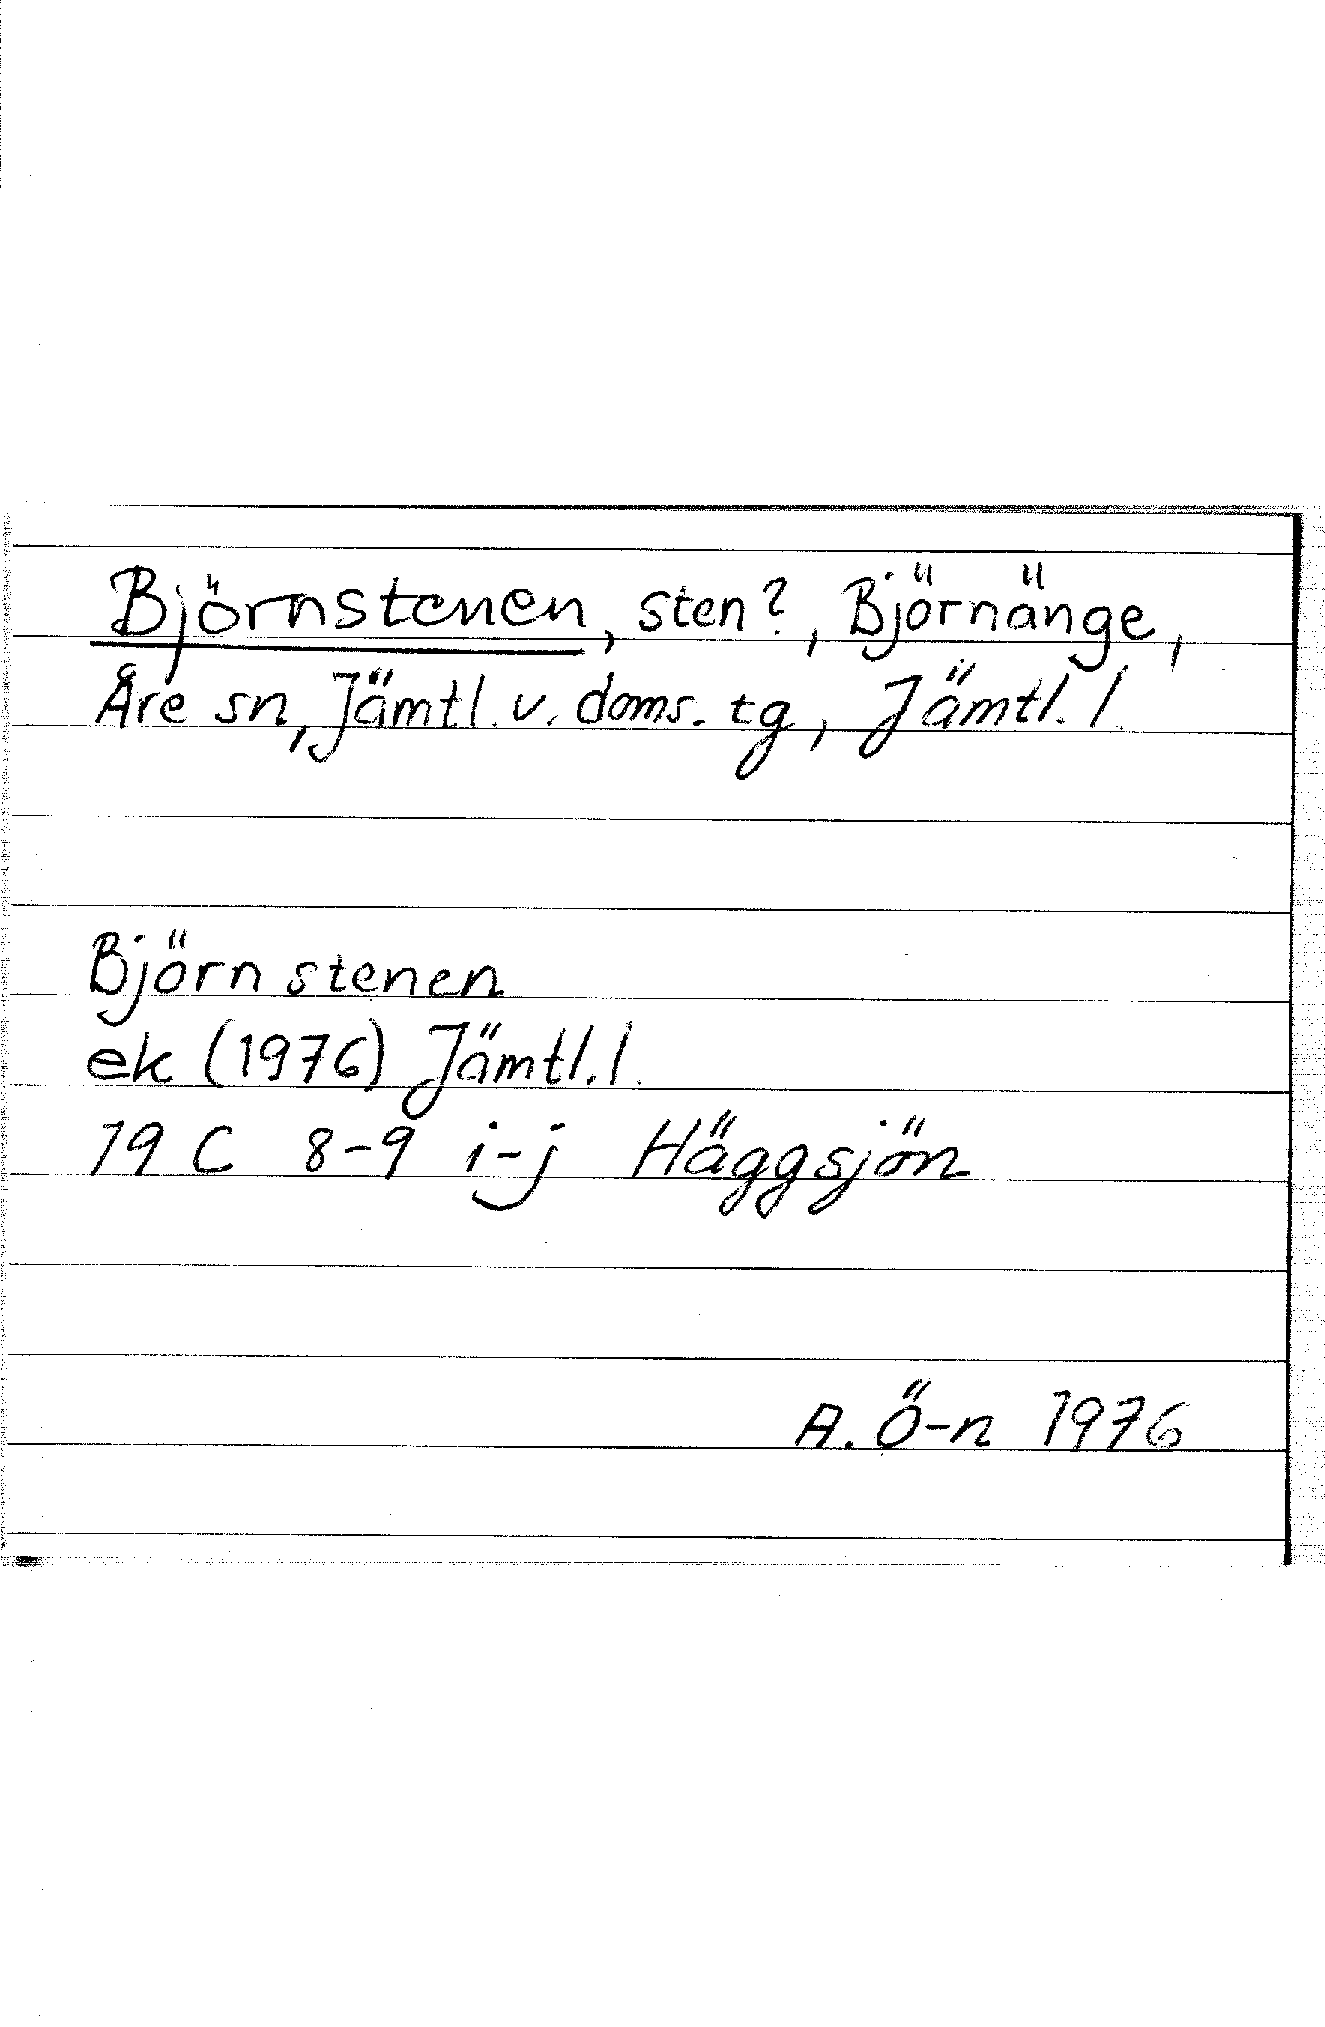 Björnstenen, sten?, Björnänge,
Åre sn, Jämtl. v. doms. tg, Jämtl. l.
Björnstenen
ek (1976) Jämtl. l.
19 C 8-9 i-j Häggsjön
A. Ö-n 1976